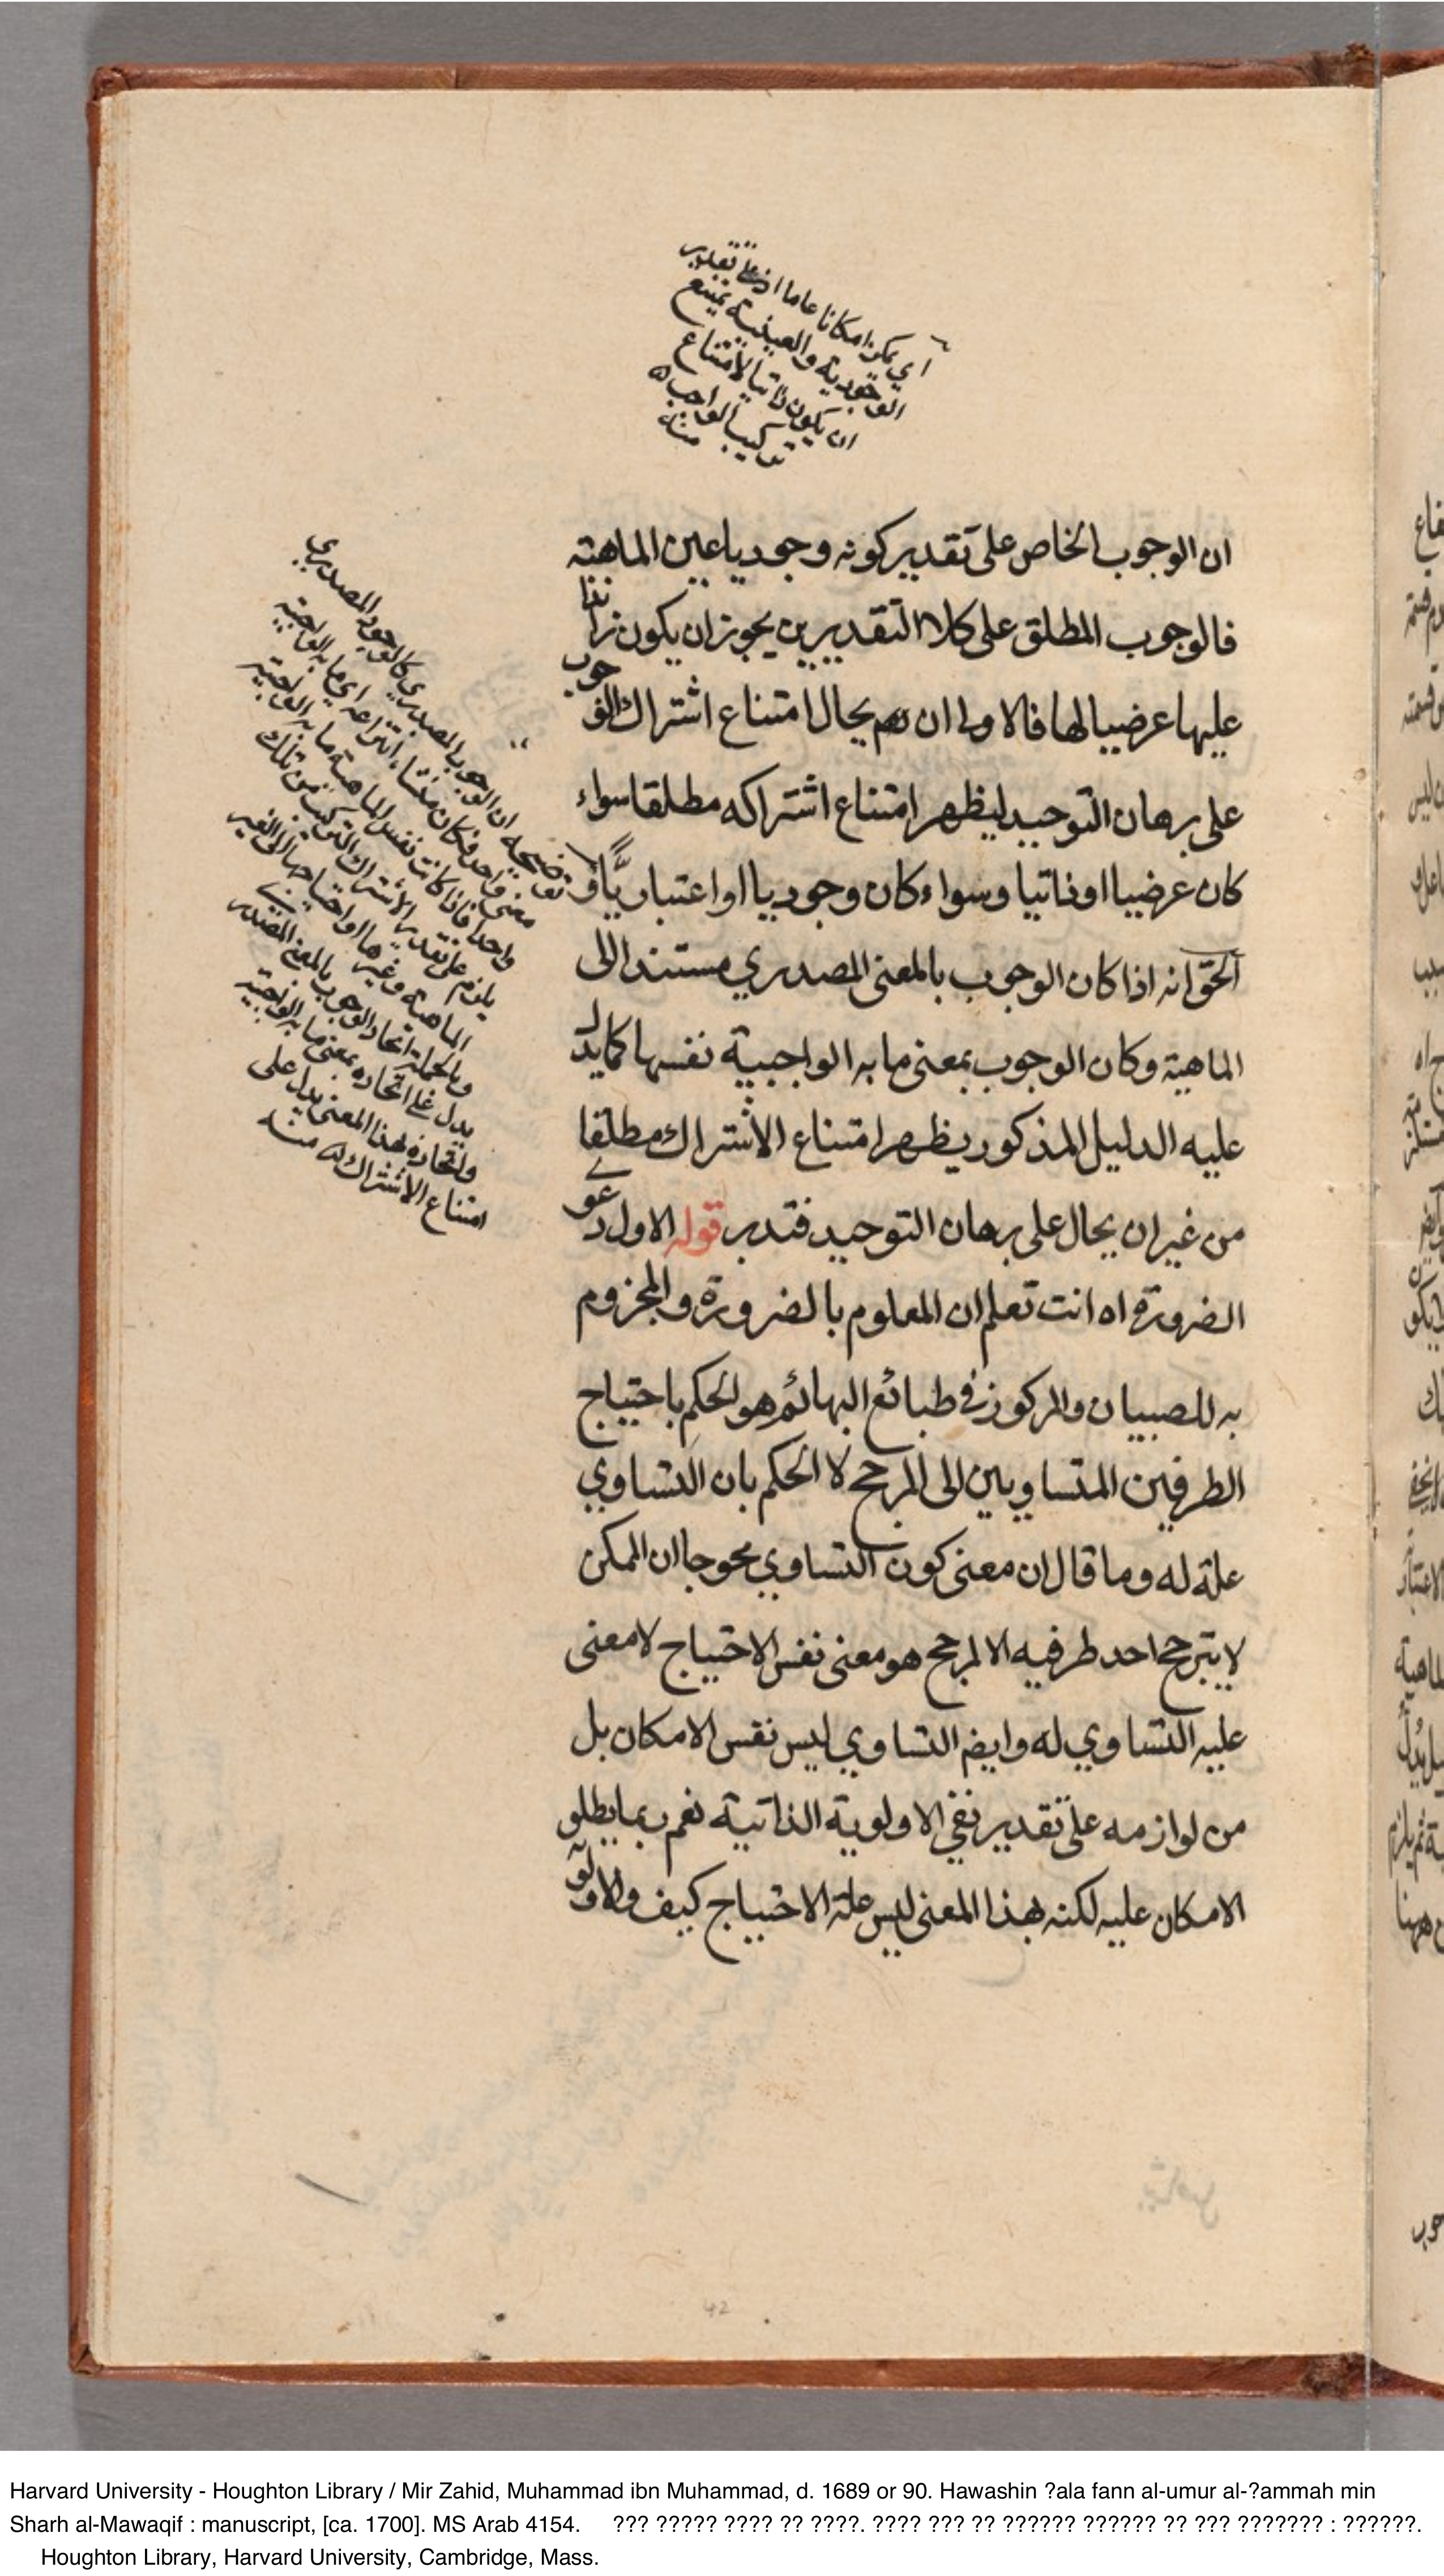 اي يمكن امكانا عاما اذ على تقدير
الوجودية والعينية يمتنع
ان يكون ذاتيا لامتناع
تركيب الواجب ه
منه
ان الوجوب الخاص على تقدير كونه وجوديا عين الماهية
فالوجوب المطلق على كلا التقديرين يجوز ان يكون زائدا
عليها عرضيا لها فالاولى ان يحال امتناع اشتراك الوجوب
على برهان التوحيد ليظهر امتناع اشتراكه مطلقا سواء
كان عرضيا او ذاتيا وسواء كان وجوديا او اعتباريًّا و
الحق انه اذا كان الوجوب بالمعنى المصدري مستندا الى
الماهية وكان الوجوب بمعنى ما به الواجبية نفسها كما يدل
عليه الدليل المذكور يظهر امتناع الاشتراك مطلقا
من غير ان يحال على برهان التوحيد فتدبر قوله الاول دعوى
الضرورة اه انت تعلم ان المعلوم بالضرورة والمجزوم
به للصبيان والمركوز في طبائع البهائم هو الحكم باحتياج
الطرفين المتساويين الى المرجح لا الحكم بان التساوي
علة له وما قال ان معنى كون التساوي محوجا ان الممكن
لا يترجح احد طرفيه الا لمرجح هو معنى نفس الاحتياج لا معنى
علية التساوي له وايضم التساوي ليس نفس الامكان بل
من لوازمه على تقدير نفي الاولوية الذاتية نعم ربما يطلق
الامكان عليه لكنه بهذا المعنى ليس علة الاحتياج كيف والاولو
توضيحه ان الوجوب المصدري كالوجود المصدري
معنى واحد فكان منشاء انتزاعه اي ما به الواجبية
واحدا فاذا كانت نفس الماهية ما به الواجبية
يلزم على تقدير الاشتراك التركيب من تلك
الماهية وغيرها او احتياجها الى الغير
وبالجملة اتحاد الوجوب بالمعنى المصدري
يدل على اتحاده بمعنى ما به الواجبية
واتحاده بهذا المعنى يدل على
امتناع الاشتراك ه منه
42
Harvard University - Houghton Library / Mir Zahid, Muhammad ibn Muhammad, d. 1689 or 90. Hawashin ?ala fann al-umur al-?ammah min
Sharh al-Mawaqif : manuscript, [ca. 1700]. MS Arab 4154. ??? ????? ???? ?? ????. ???? ??? ?? ?????? ?????? ?? ??? ??????? : ??????.
Houghton Library, Harvard University, Cambridge, Mass.